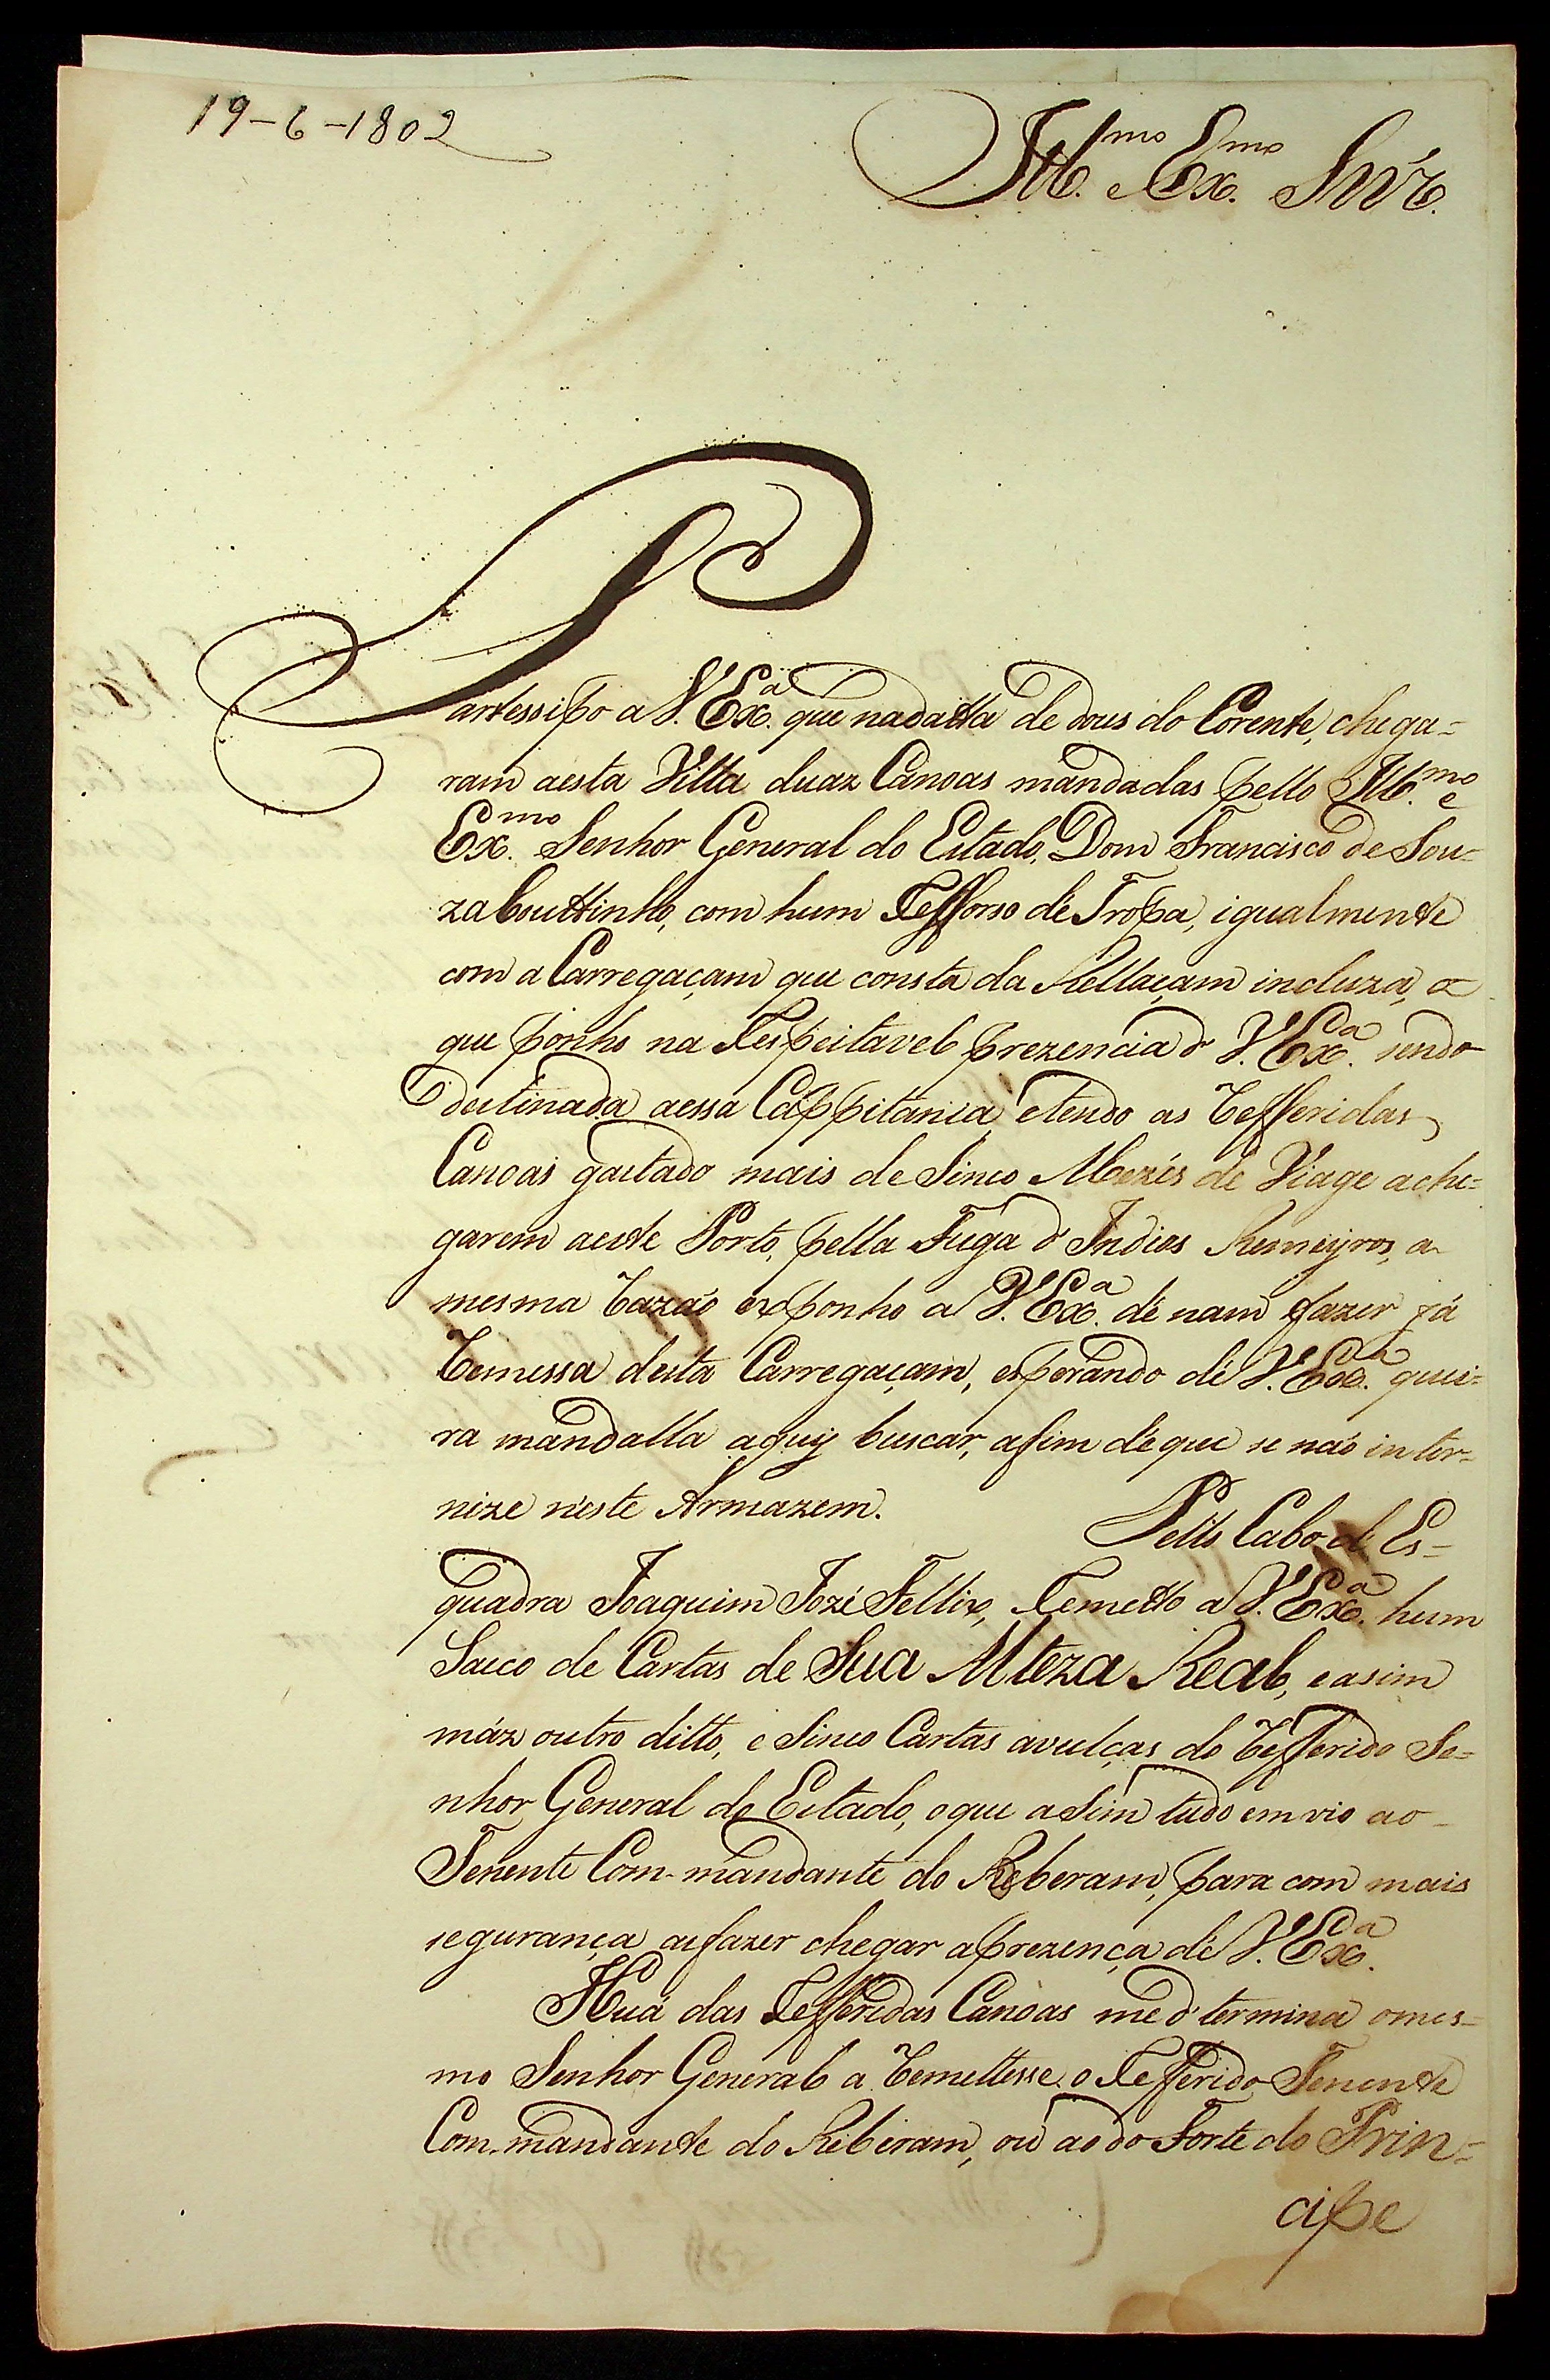 19-6-1802
Ill.mo e Ex.mo Snr.
Partessipo a V. Ex.a que nadatta de dous do Corente, chega=
ram aesta Villa duaz Canoas mandadas pello Ill.mo e
Ex.mo Senhor General do Estado, Dom Francisco de Sou=
za Couttinho, com hum Refforso de Tropa, igualmente
com a Carregaçam que consta da Rellaçam incluza, a
que ponho na Respeitavel prezencia d' V. Ex.a sendo
destinada aessa Cappitania, etendo as Refferidas
Canoas gastado mais de Sinco Mezes de Viage ache=
garem aeste Porto, pella Fuga d' Indios Remeyros, a
mesma Razaõ exponho a V. Ex.a de nam fazer já
Remessa desta Carregaçam, esperando de V. Ex.a quei=
ra mandalla aquy buscar, afim de que se naõ inter=
nize n'este Armazem.
Pello Cabo d' Es=
quadra Joaquim Jozé Fellix, Remetto a V. Ex.a hum
Saco de Cartas de Sua Alteza Real, e asim
máz outro ditto, e Sinco Cartas avulças do Refferido Se=
nhor General do Estado, oque aSim tudo emvio ao
Tenente Com-mandante do Reberam, para com mais
segurança afazer chegar aprezença de V. Ex.a
Huã das Refferidas Canoas me d'termina omes=
mo Senhor General a Remettesse o Refferido Tenente
Com-mandante do Riberam, ou ao do Forte do Prin=
cipe